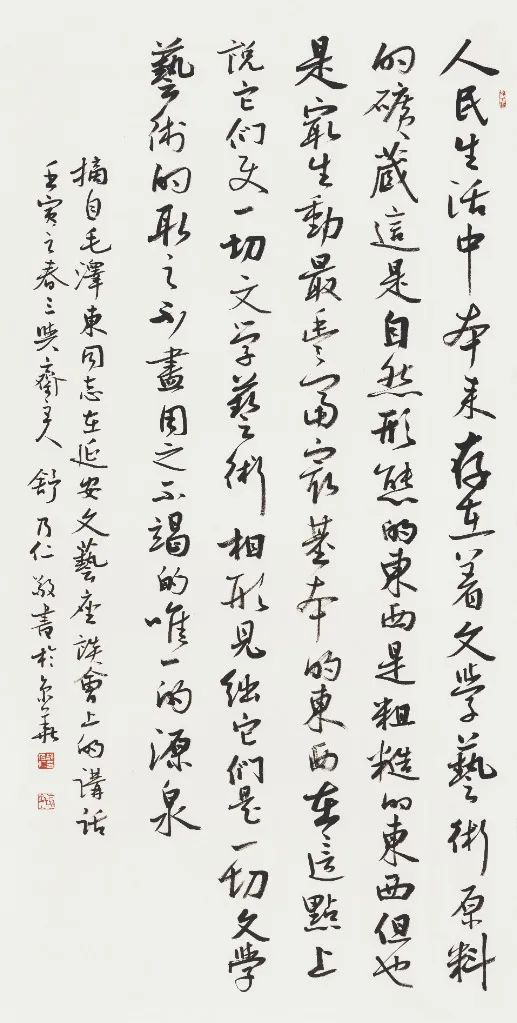 人民生活中本来存在着文學藝術原料
的礦藏這是自然形態的東西是粗糙的東西但也
是最生動最豐富最基本的東西在這點上
説它们使一切文学藝術相形見絀它们是一切文學
藝術的取之不盡用之不竭的唯一的源泉
摘自毛澤東同志在延安文藝座談會上的講話
壬寅之春三齋主人舒乃仁敬書於京華